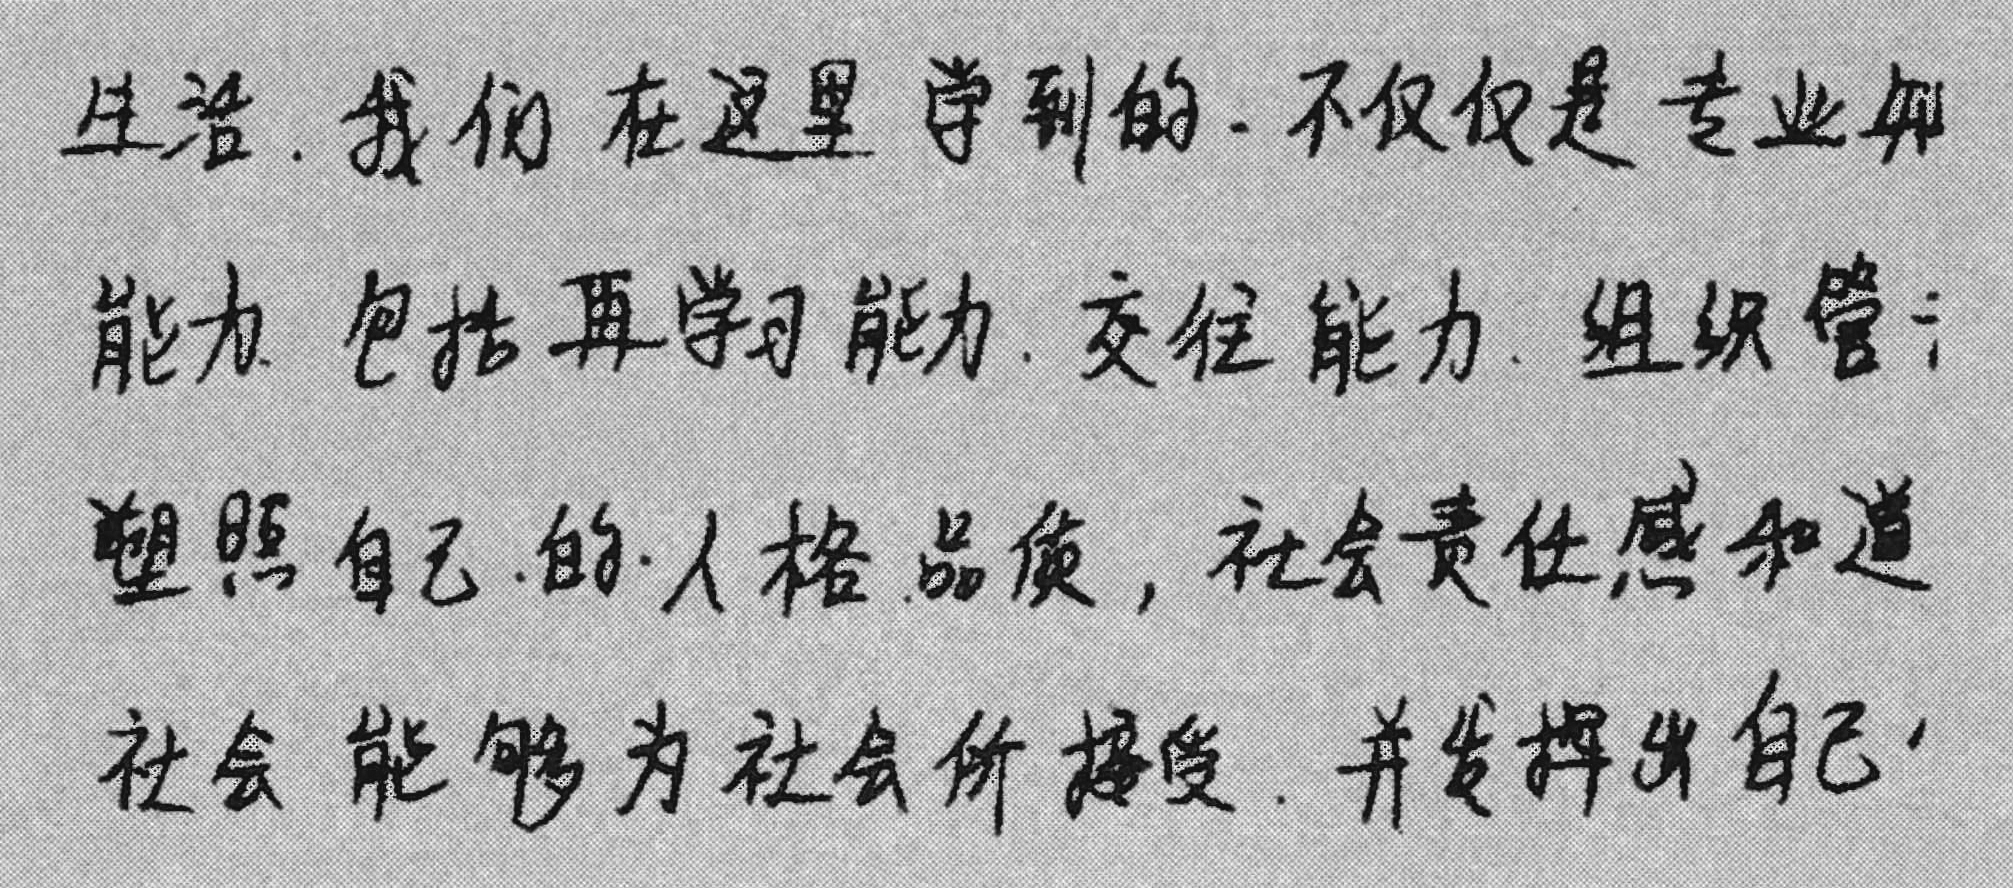 生活.我们在这里学到的.不仅仅是专业知
能力.包括再学习能力.交往能力.组织管
塑照自己.的.人格.品质,社会责任感和道
社会能够为社会所接受.并发挥出自己